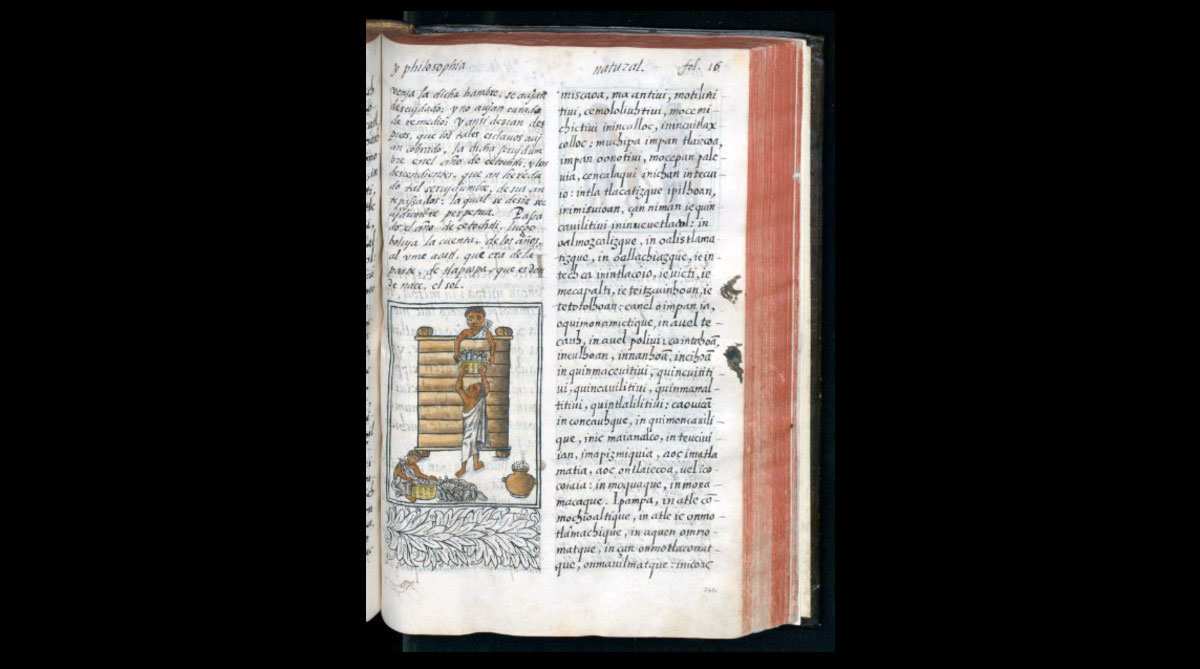 y philosophia
natural. fol. 16
venia la dicha hambre, se auian
descuydado: y no auian curado
de remedio: y ansi dezian des
pues, que los tales esclauos aui
an cobrado, la dicha seruidum
bre enel año de cetochtli, y los
descendientes, que an hereda
do tal seruydumbre, de sus an
tepassados: la qual se dezia se
ruidumbre perpetua. Passa
do el año, de cetochtli, luego
boluja la cuenta, de los años,
al vme acatl, que era de la
parte, de tlapcopa, que es don
de nace, el sol.
miscaoa, ma antiui, motiliniti
tiui, cemololiuhtiui, mocemi
chictiui inincolloc, inincuitlax
colloc: muchipa impan tlaixcoa,
impan oonotiui, mocepan pale
uia, cencalaqui onichan intecu
io: intla tlacatizque ipilhoan,
inimixuioan, çan niman ie quin
cauilitiui ininueuetlacol: in
oalmozcalizque, in oalixtlama
tizque, in oallachiazque, ie in
techca inintlacoio, ie victi, ie
mecapalti, ie teitzcuinhoan, ie
tetotolhoan: canel o impan ia,
oquimonamictique, in auel te
cauh, in auel poliui: ca intahoā,
inculhoan, innanhoā, incihoā
in quinmaceuitiui, quincuititi
ui, quincauilitiui, quinmamal
titiui, quintlalilitiui: ca ouicā
in concauhque, in quimoncauili
que, inic maianalco, in teuciui
ian, in apizmiquia, aoc imatla
matia, aoc ontlaiecoa, vel ico
coiaia: in moquaque, in mona
macaque. Ipampa, in atle cō
mochioaltique, in atle ic onmo
tlamachique, in aquen ommo
matque, in çan onmotlacomat
que, onmauilmatque: in icoac